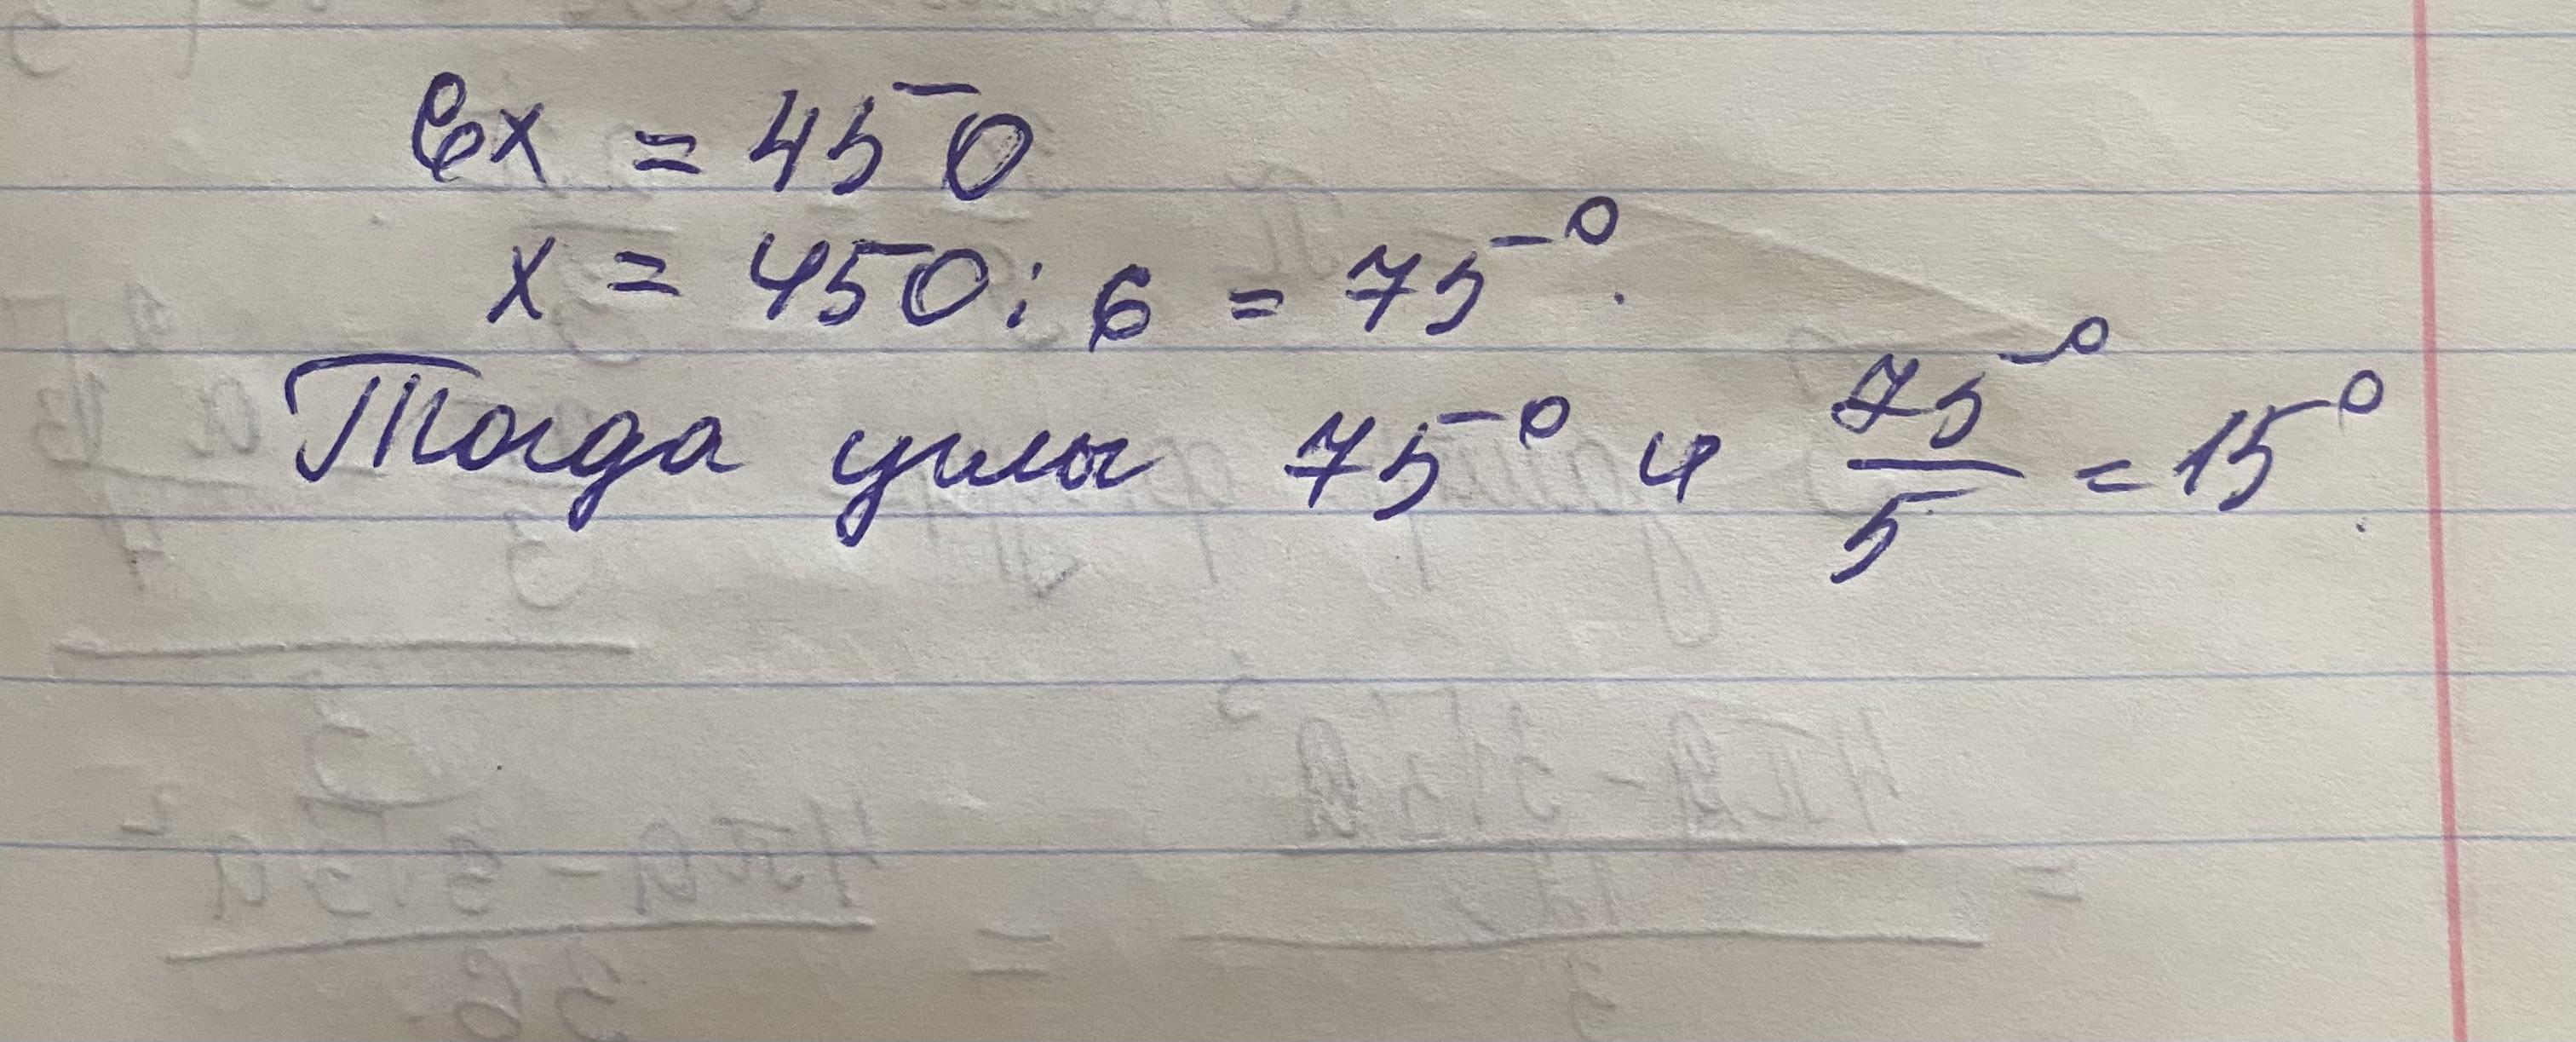 6x = 450
x = 450 : 6 = 75°.
Тогда углы 75° и 75°/5 = 15°.